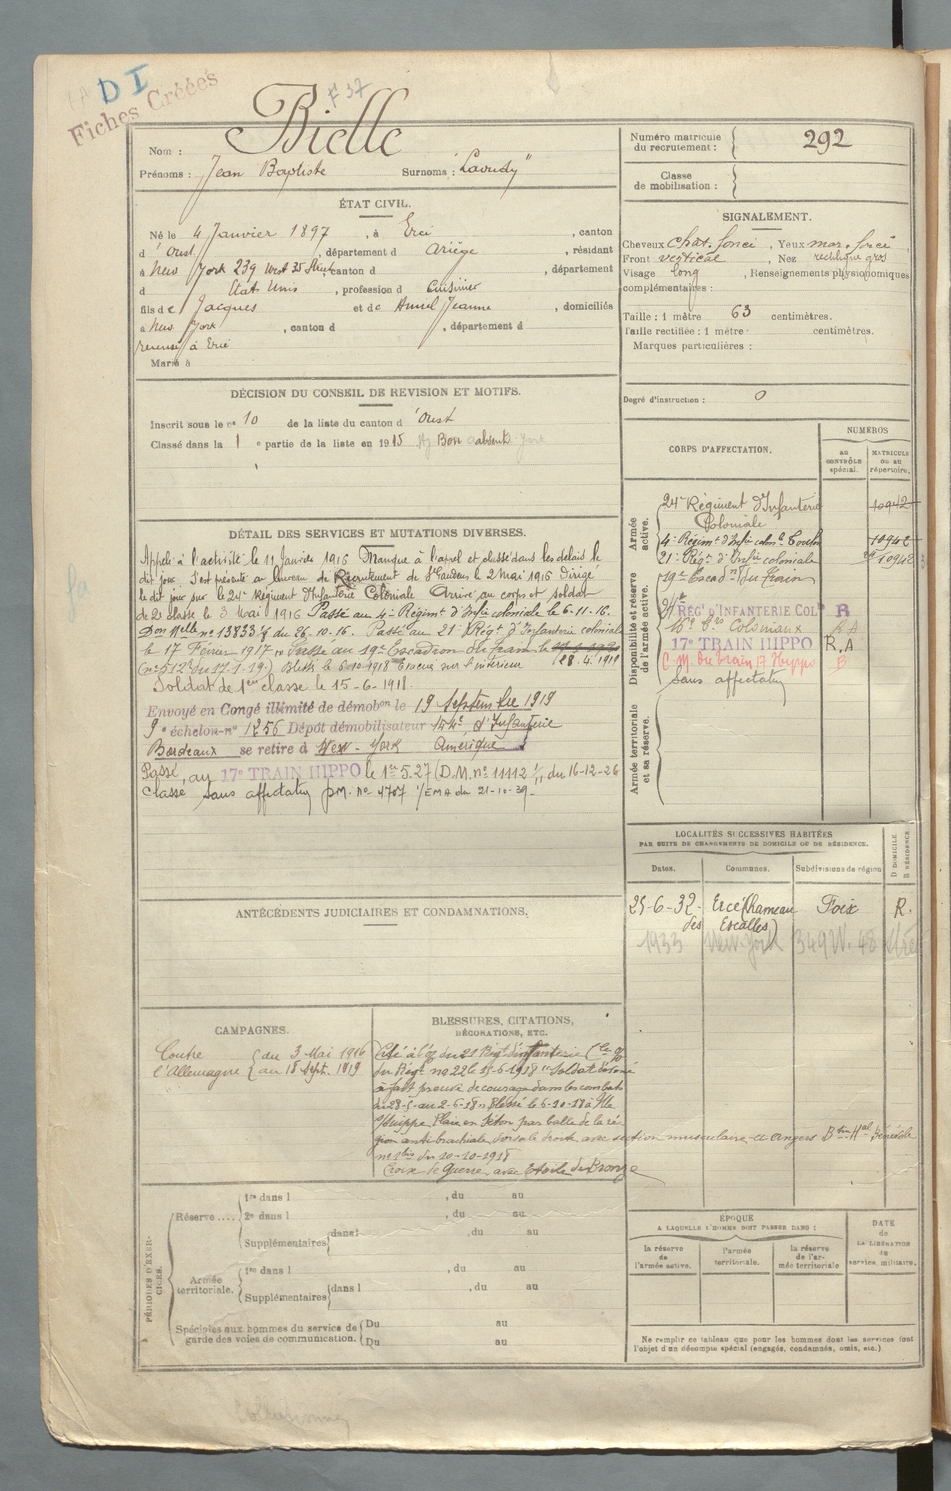 DI
F 37
Fiches Créées
Nom : Bielle
Prénoms : Jean Baptiste Surnoms : "Laoudy"
ÉTAT CIVIL.
Né le 4 Janvier 1897, à Ercé, canton
d'Oust, département d Ariège, résidant
à New York 239 West 35 Street canton d , département
d États Unis, profession d cuisinier
fils de Jacques et de Jeanne, domiciliés
à New York, canton d , département d
à Ercé
Marié à
DÉCISION DU CONSEIL DE REVISION ET MOTIFS.
Inscrit sous le n° 10 de la liste du canton d'Oust
Classé dans la 1e partie de la liste en 1915 Bon absent
DÉTAIL DES SERVICES ET MUTATIONS DIVERSES.
Appelé à l'activité le 11 Janvier 1916 Manque à l'appel et classé dans les délais le
dit jour. S'est présenté au bureau de Recrutement de St Gaudens le 2 Mai 1916 Dirigé
le dit jour sur le 24e Régiment d'Infanterie Coloniale Arrivé au corps et soldat
de 2e classe le 3 Mai 1916 Passé au 4e Régimt d'Infie coloniale le 6.11.16.
Don Mlle no 13833 du 26.10.16. Passé au 21e Régt d'Infanterie coloniale
le 17 Février 1917 Passé au 19e Escadron du train le
(no 512 du 17.1.19.) Blessé le 6.10.1918 Évacué sur l'intérieur (28.4.1919
Soldat de 1ere classe le 15-6-1918.
Envoyé en Congé illimité de démobon le 19 Septembre 1919
9e échelon-no 1256 Dépôt démobilisateur 144e d'Infanterie
Bordeaux se retire à New-York Amérique
Passé au 17e TRAIN HIPPO le 1er 5.27 (D.M. no 11112 1/11 du 16-12-26
Classé sans affectation D.M. no 4707 1/EMA du 21-10-39-
ANTÉCÉDENTS JUDICIAIRES ET CONDAMNATIONS.
CAMPAGNES.
Contre { du 3 Mai 1916
l'Allemagne { au 18 Sept. 1919
BLESSURES, CITATIONS,
DÉCORATIONS, ETC.
Cité à l'o/ du 21 Régt d'infanterie Cle
du Régt no 22 le 15-6-1918 "Soldat dévoué
a fait preuve de courage dans les combats
du 28-5-au 2-6-18" Blessé le 6-10-18 à
s/Suippe Plaie en séton par balle de la ré-
gion antibrachiale dorsale droite avec section musculaire
du 10-10-1918
Croix de Guerre avec Etoile de Bronze
PÉRIODES D'EXERCICES.
Réserve.... 1re dans l , du au
2e dans l , du au
Supplémentaires dans l , du au
Armée territoriale. 1re dans l , du au
Supplémentaires dans l , du au
Spéciales aux hommes du service de garde des voies de communication. Du au
Du au
Numéro matricule du recrutement : 292
Classe de mobilisation :
SIGNALEMENT.
Cheveux chat. foncé, Yeux mar. foncé
Front vertical, Nez rectiligne gros
Visage long, Renseignements physionomiques
complémentaires :
Taille : 1 mètre 63 centimètres.
Taille rectifiée : 1 mètre centimètres.
Marques particulières :
Degré d'instruction : 0
CORPS D'AFFECTATION.
NUMÉROS
AU CONTRÔLE spécial.
MATRICULE OU AU répertoire.
Armée active.
24e Régiment d'Infanterie Coloniale 10942
4e Régimt d'Infie colole Toulon 10942
21e Régt d'Infie coloniale 10942
19e Escadn du train
Disponibilité et réserve de l'armée active.
21e REG' D'INFANTERIE COL R
Coloniaux R A
17e TRAIN HIPPO R.A
C.M. du train 17 Hippo B
Sans affectation
Armée territoriale et sa réserve.
LOCALITÉS SUCCESSIVES HABITÉES
PAR SUITE DE CHANGEMENTS DE DOMICILE OU DE RÉSIDENCE.
Dates. Communes. Subdivisions de région D DOMICILE R RÉSIDENCE.
25-6-32- Ercé (hameau des Escalles) Foix R.
1933 New York 349 W. 48 Street
ÉPOQUE
A LAQUELLE L'HOMME DOIT PASSER DANS :
la réserve de l'armée active.
l'armée territoriale.
la réserve de l'armée territoriale
DATE de LA LIBÉRATION du service militaire.
Ne remplir ce tableau que pour les hommes dont les services font
l'objet d'un décompte spécial (engagés, condamnés, omis, etc.)